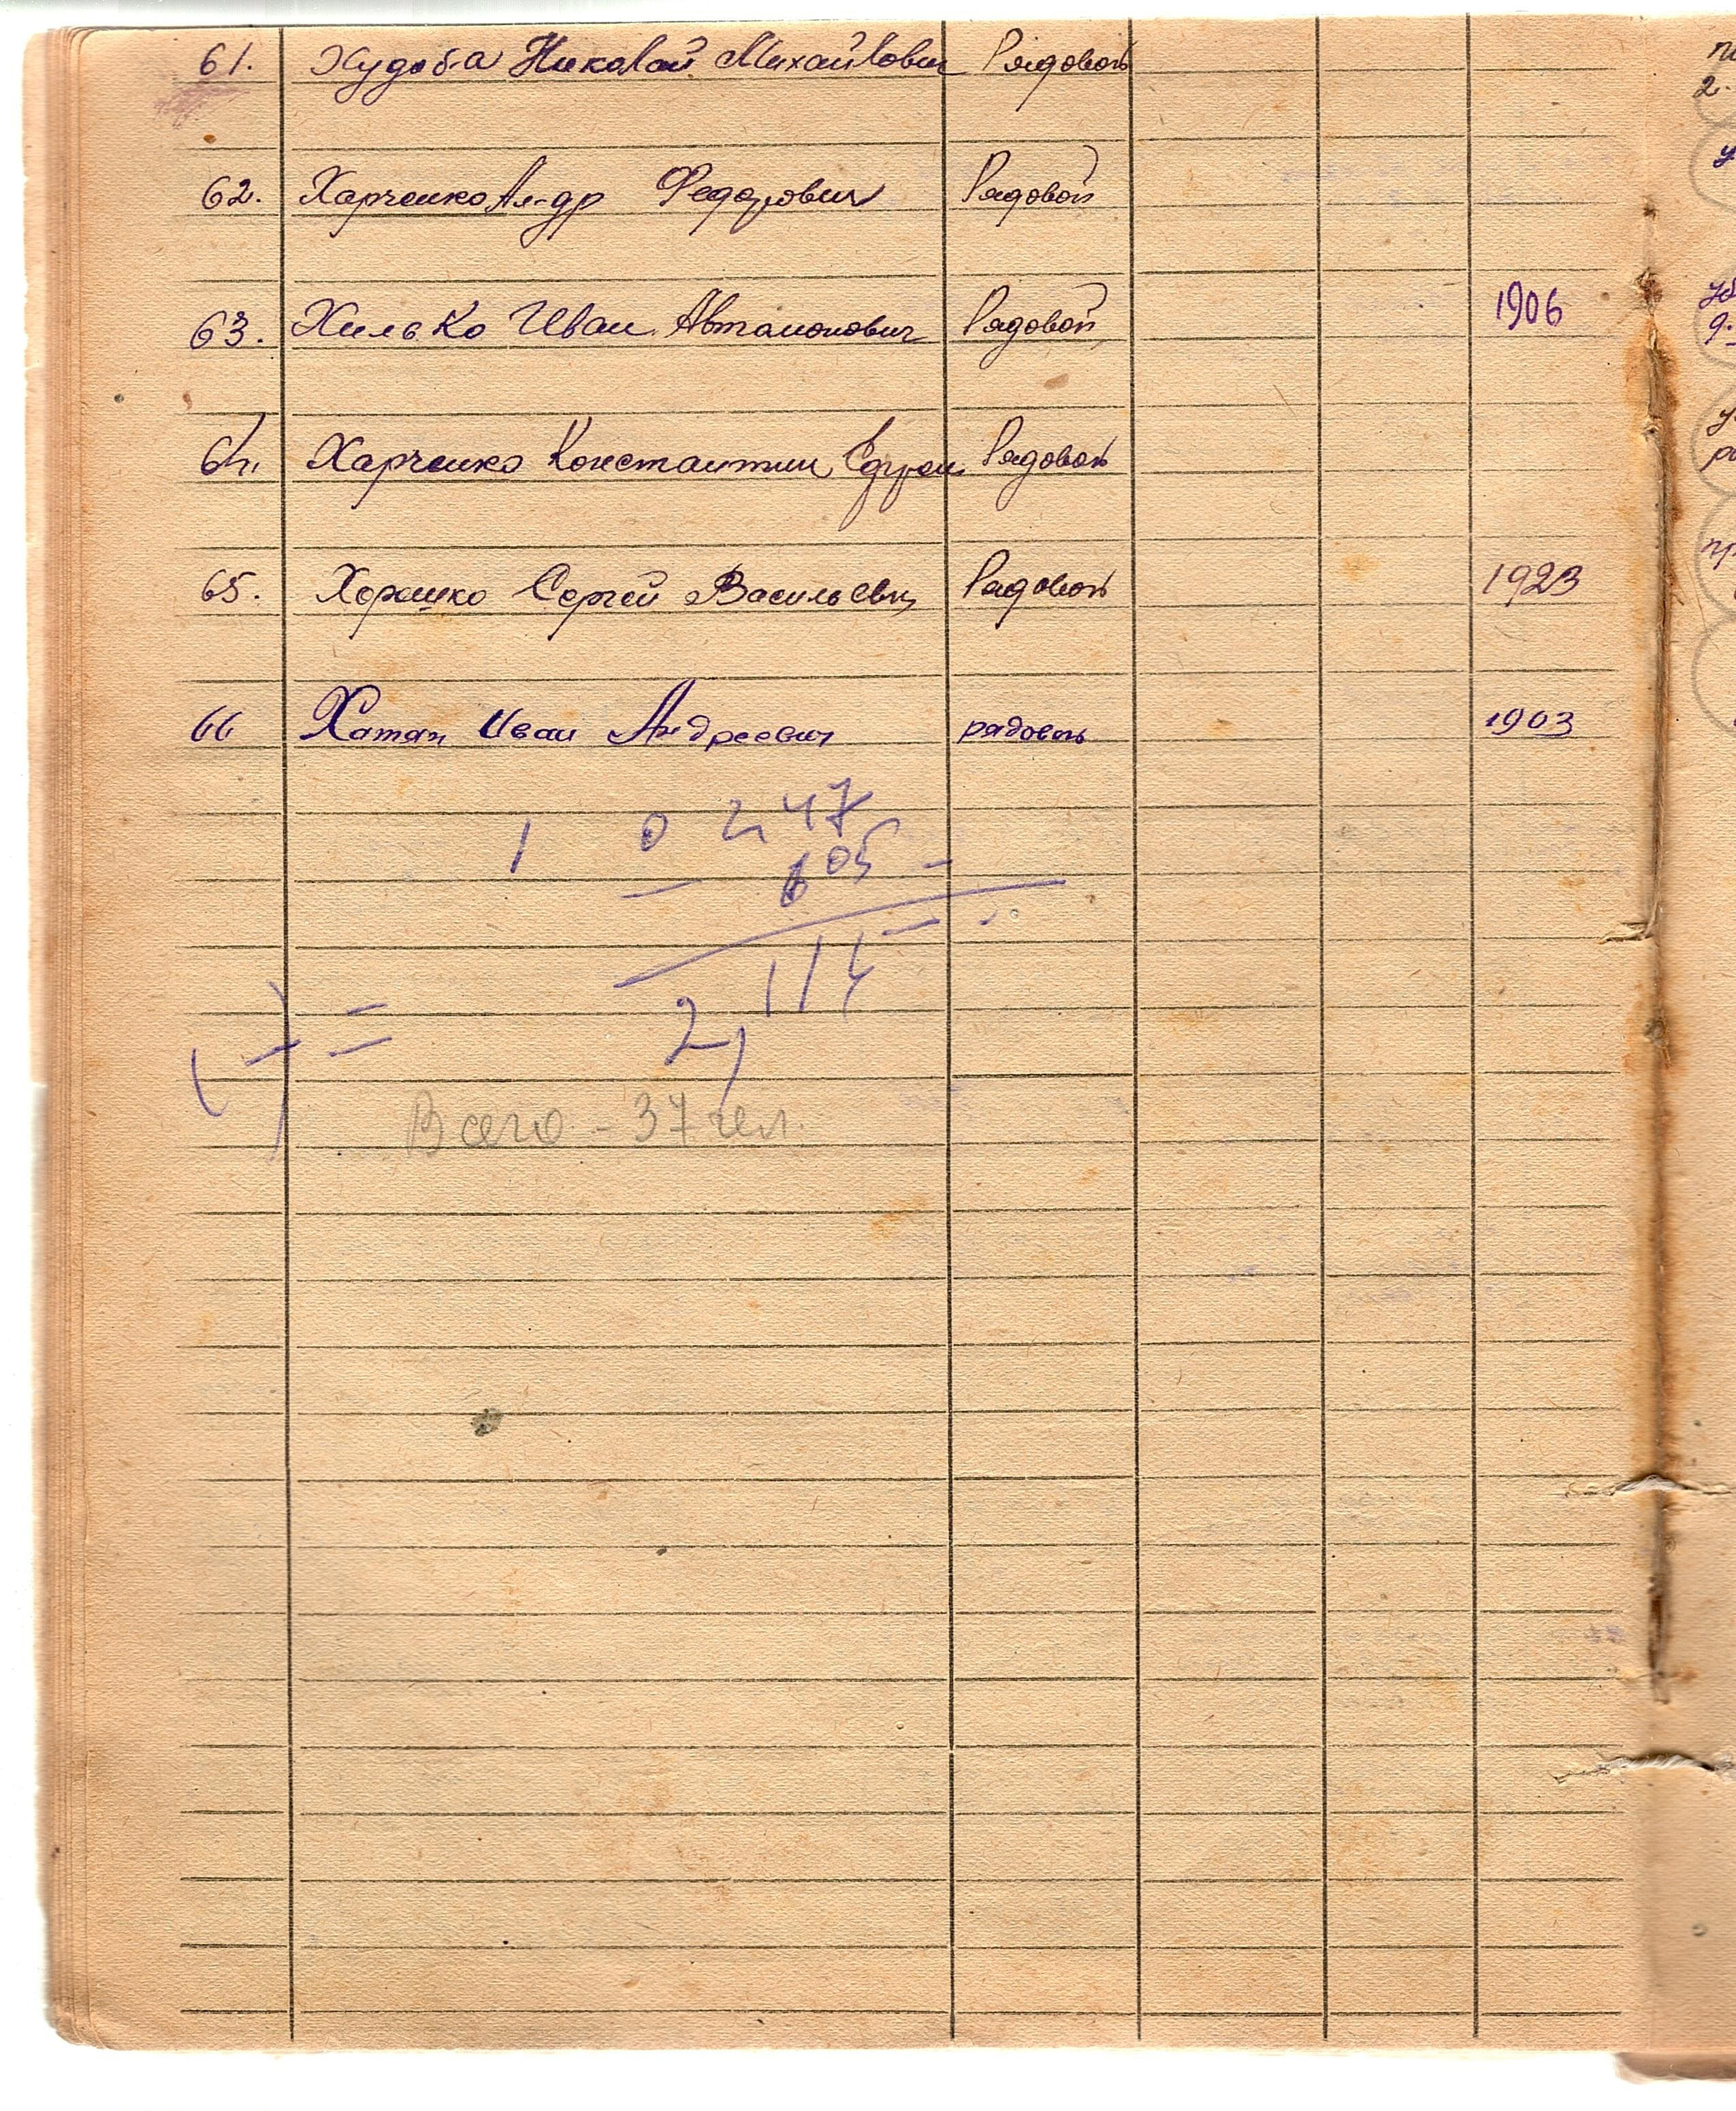 61. Худоба Николай Михайлович Рядовой
62. Харченко Ал-др Федорович Рядовой
63. Хилько Иван Автамонович Рядовой 1906
64. Харченко Константин Рядовой
65. Хорошко Сергей Васильевич Рядовой 1923
66 Хатян Иван Андреевич рядовой 1903
1 0 2,47
605 -
2,114
=
Всего - 37 чел.